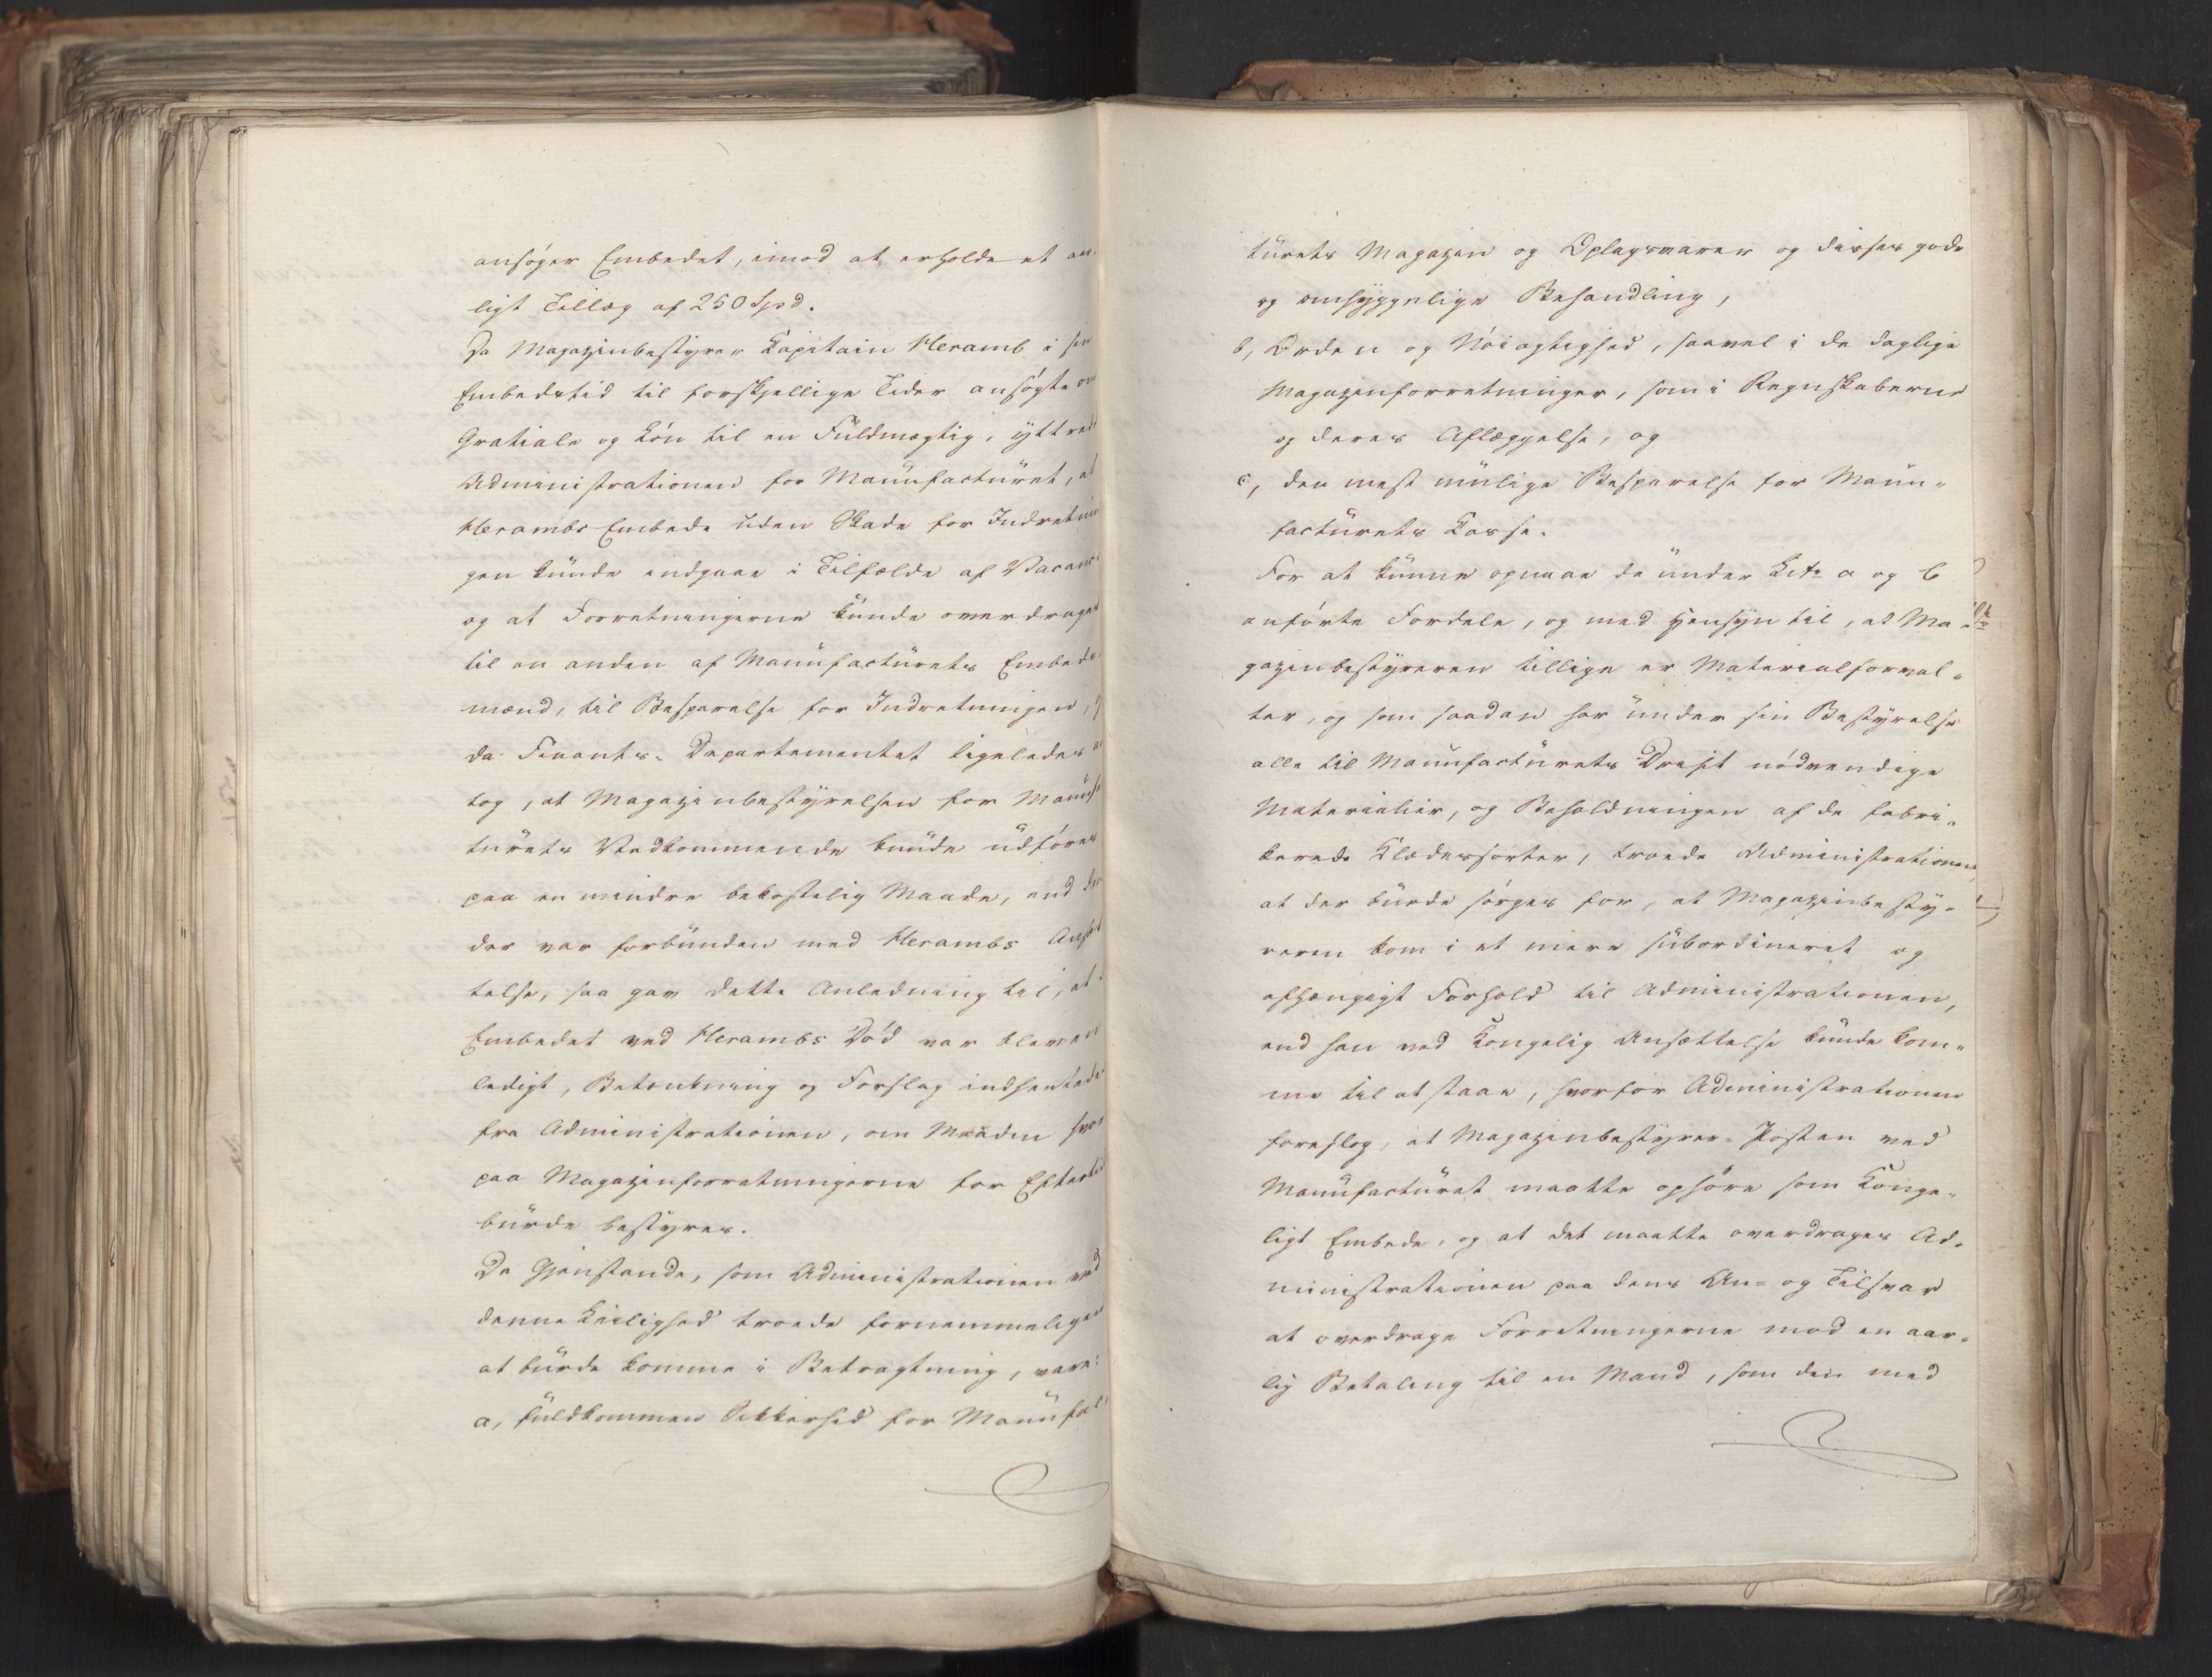 ansøger Embedet, imod at erholde et aar-
ligt Tillæg af 250 Spd.
Da Magazinbestyrer Kapitain Heramb i sin
Embedstid til forskjellige Tider ansøgte om
Gratiale og Løn til en Fuldmægtig, yttrede
Administrationen for Manufacturet, at
Herambs Embede uden Skade for Indretnin
gen kunde indgaae i Tilfælde af Vacance
og at Forretningerne kunde overdrages
til en anden af Manufacturets Embeds
mænd, til Besparelse for Indretningen, og
da Finants-Departementet ligeledes an
tog, at Magazinbestyrelsen for Manufac
turets Vedkommende kunde udføres
paa en mindre bekostelig Maade, end den
der var forbunden med Herambs Ansæt
telse, saa gav dette Anledning til, at
Embedet ved Herambs Død var bleven
ledigt, Betænkning og Forslag indhentedes
fra Administrationen, om Maaden hvor
paa Magazinforretningerne for Eftertid
burde bestyres.
De Gjenstande, som Administrationen ved
denne Leilighed troede fornemmeligen
at burde komme i Betragtning, vare:
a, fuldkommen Sikkerhed for Manufac
turets Magazin og Oplagsvarer og disses gode
og omhyggelige Behandling,
b, Orden og Nøiagtighed, saavel i de daglige
Magazinforretninger, som i Regnskaberne
og deres Aflæggelse, og
c, den mest mulige Besparelse for Manu-
facturets Kasse.
For at kunne opnaae de under Litr a og b
anførte Fordele, og med Hensyn til, at Ma
gazinbestyreren tillige er Materialforval-
ter, og som saadan har under sin Bestyrelse
alle til Manufacturets Drift nødvendige
Materialier, og Beholdningen af de fabri-
kerede Klædessorter, troede Administrationen,
at der burde sørges for, at Magazinbesty-
reren kom i et mere subordineret og
afhængigt Forhold til Administrationen,
end han ved Kongelig Ansættelse kunde kom-
me til at staae, hvorfor Administrationen
foreslog, at Magazinbestyrer-Posten ved
Manufacturet maatte ophøre som Konge-
ligt Embede, og at det maatte overdrages Ad-
ministrationen paa dens An- og Tilsvar
at overdrage Forretningerne mod en aar-
lig Betaling til en Mand, som den med